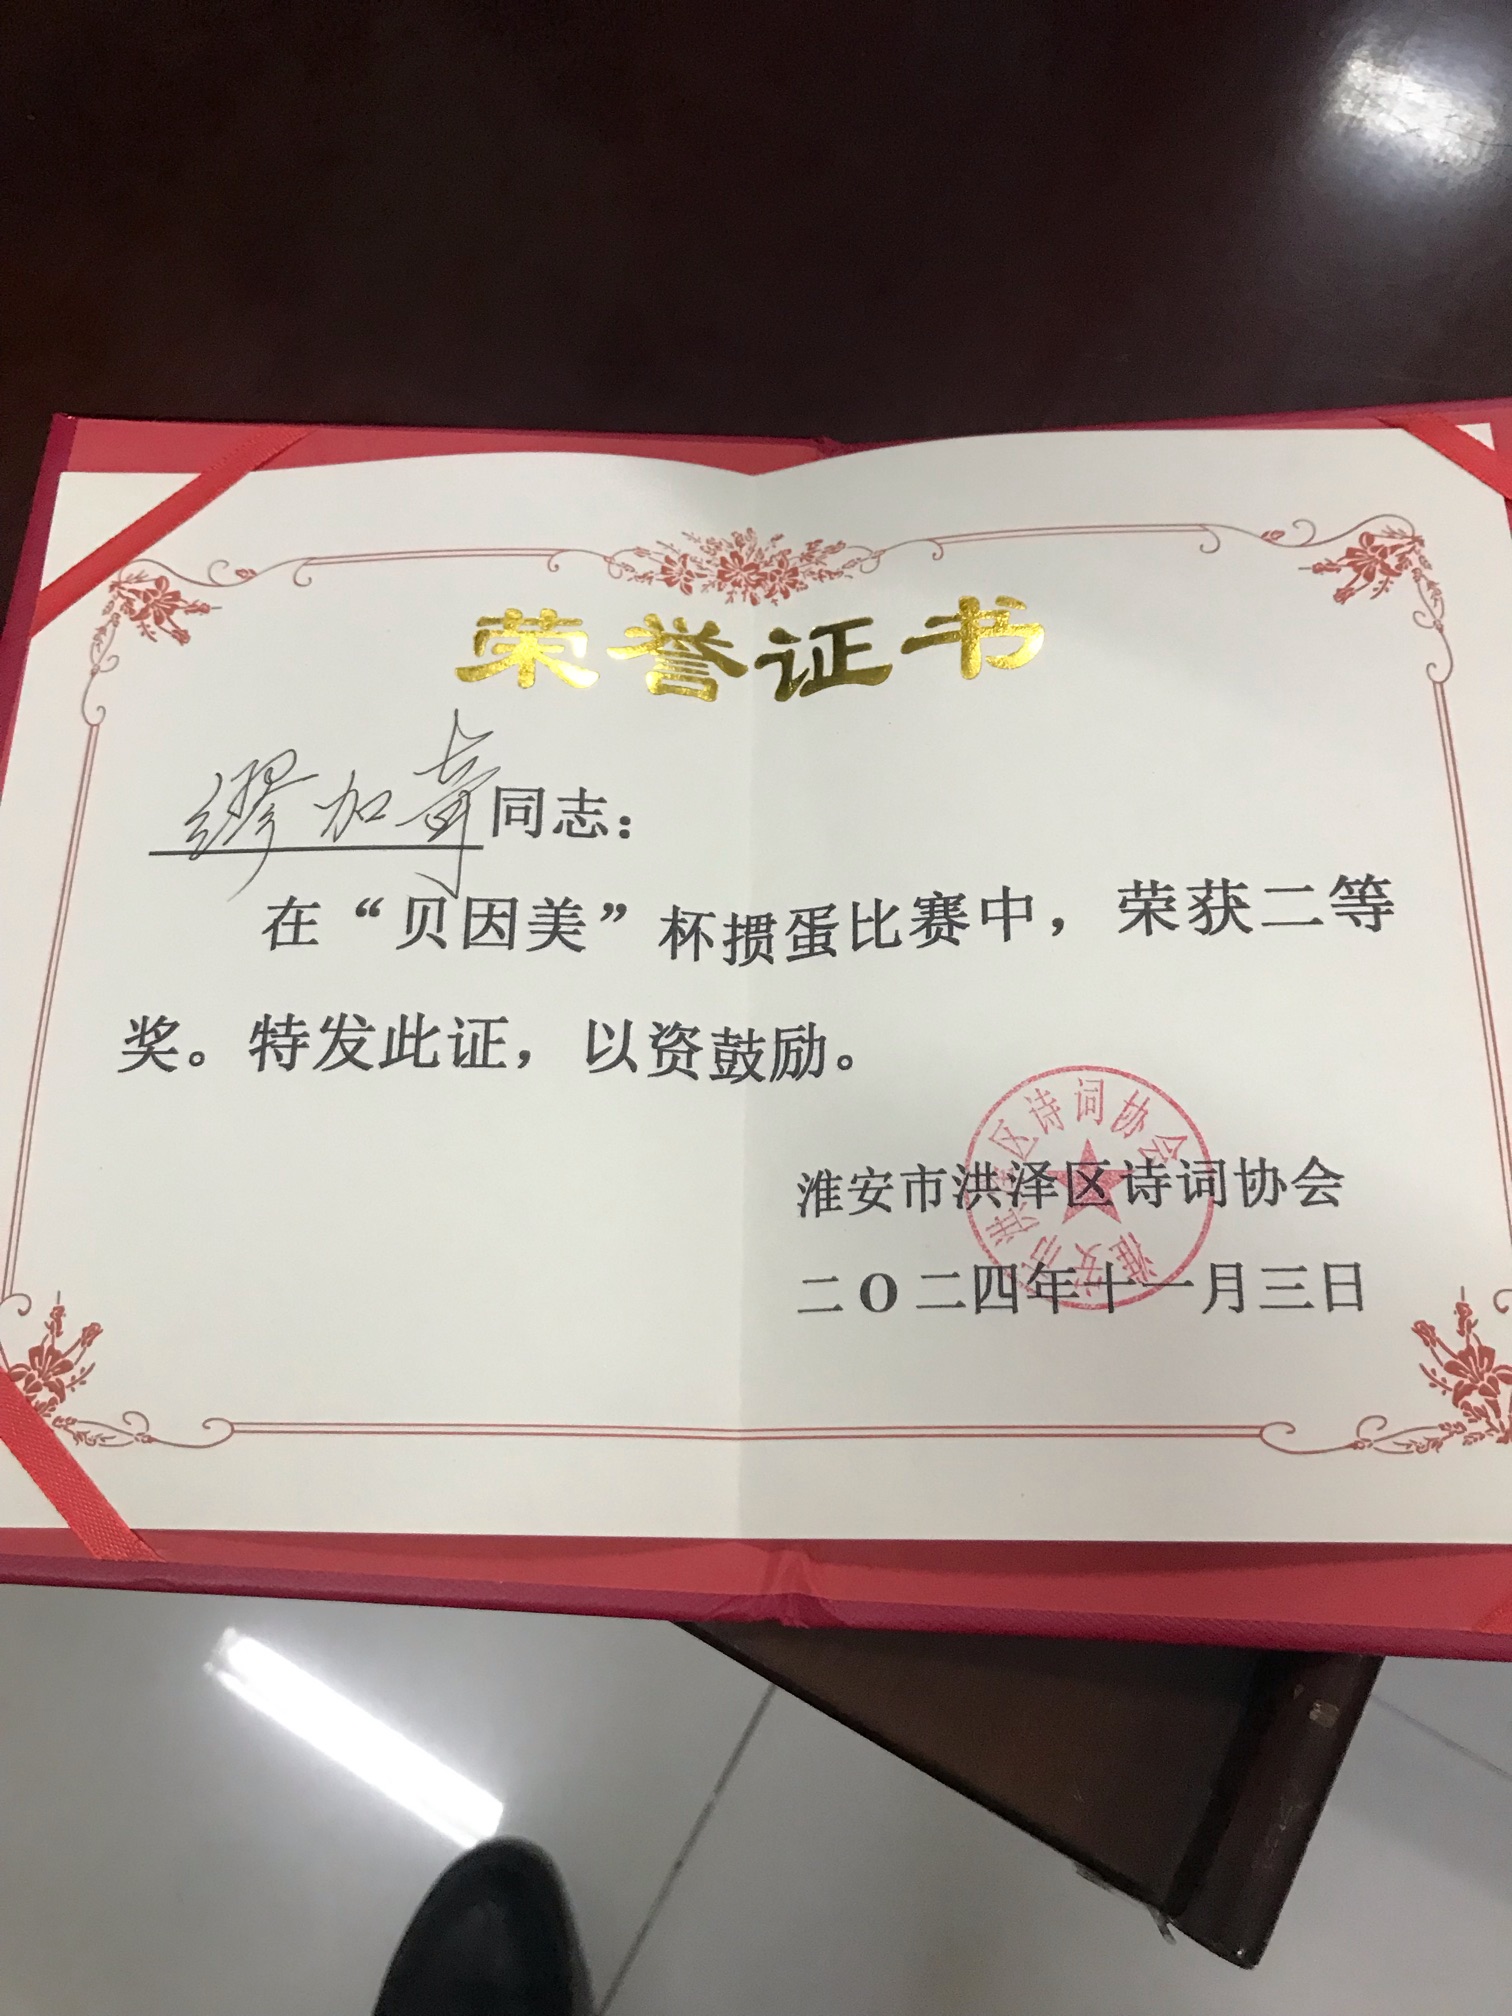 荣誉证书
缪加奇同志：
在“贝因美”杯掼蛋比赛中，荣获二等
奖。特发此证，以资鼓励。
淮安市洪泽区诗词协会
二O二四年十一月三日
淮安市洪泽区诗词协会